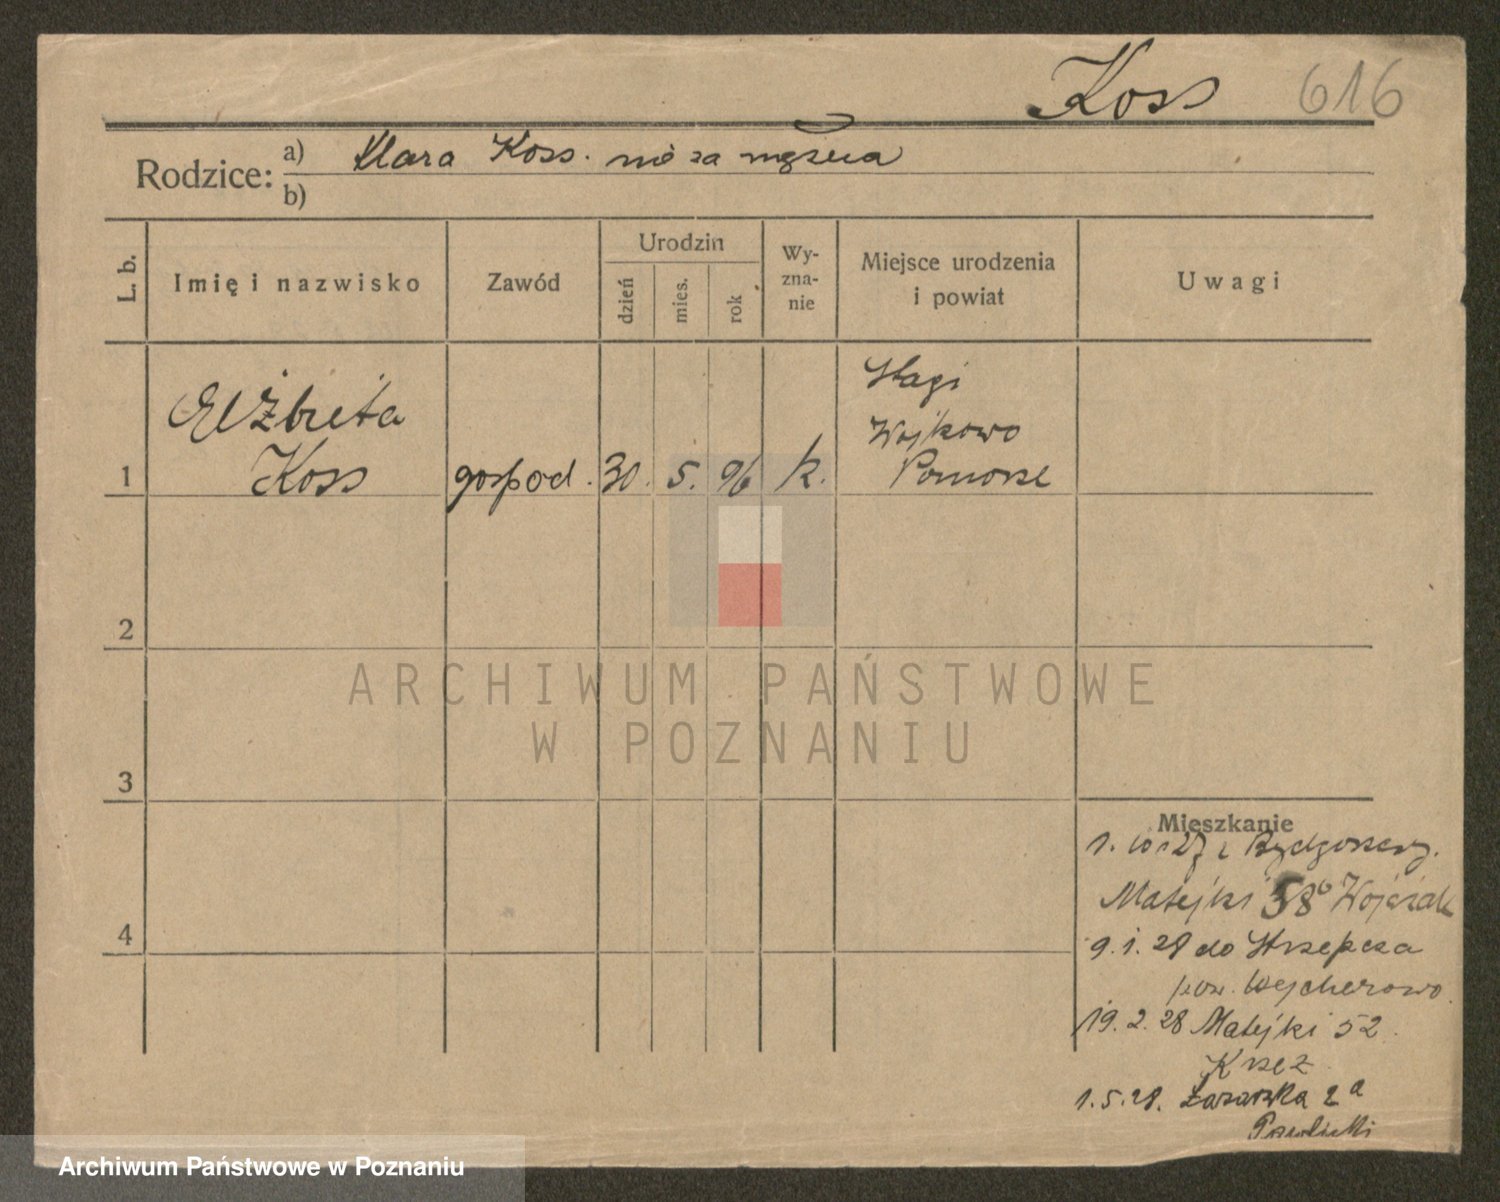 Koss 616
Rodzice: a) Klara Koss. nie za mężna
b)
L. b.
Imię i nazwisko
Zawód
Urodzin
dzień
mies.
rok
Wy-
zna-
nie
Miejsce urodzenia
i powiat
Uwagi
Elżbieta
Koss
1
gospod. 30. 5. 96 k.
Stagi
Wojkowo
Pomorze
2
3
4
Mieszkanie
1. 10. 27 z Bydgoszczy.
Matejki 58 b Wojciak
9. 1. 28 do Strzepcza
pow. Wejcherowo
19. 2. 28 Matejki 52.
1. 5. 28. Łazarska 2 a
Pawlicki
ARCHIWUM PAŃSTWOWE
W POZNANIU
Archiwum Państwowe w Poznaniu